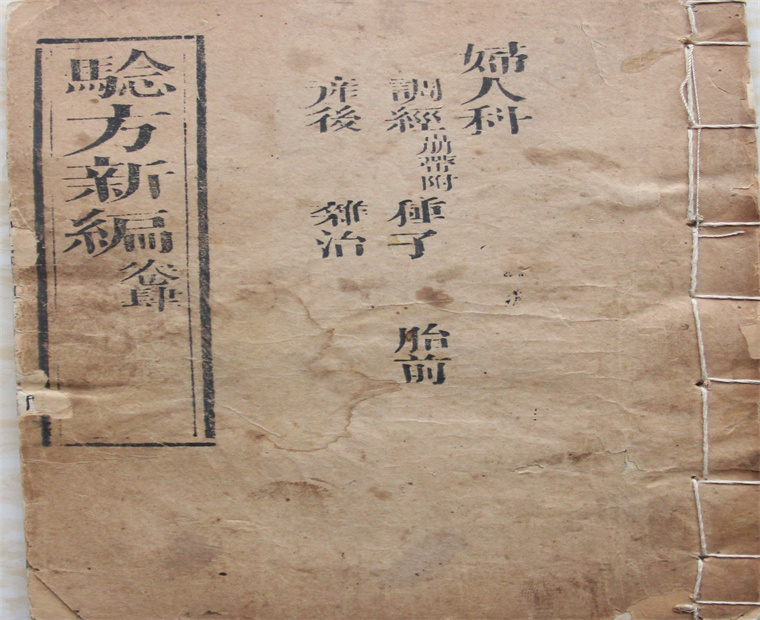 婦人科
調經 崩帶附 種子 胎前
産後 雜治
騐方新編 卷